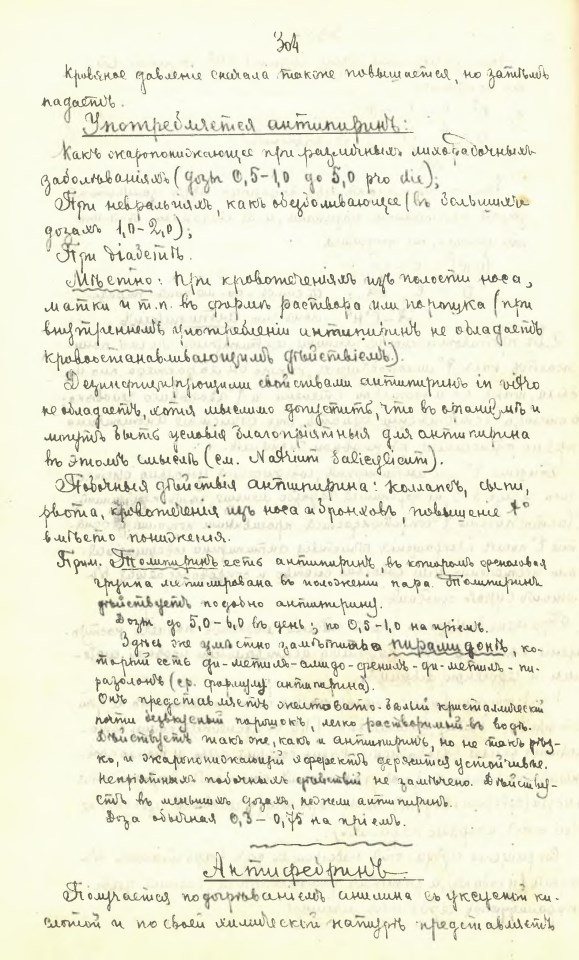 304
Кровяное давленіе сначала также повышается, но затѣмъ
падаетъ.
Употребляется антипиринъ:
Какъ жаропонижающее при различныхъ лихорадочныхъ
заболѣваніяхъ (дозы 0,5-1,0 до 5,0 pro die);
При невралгіяхъ, какъ обезболивающее (въ большихъ
дозахъ 1,0-2,0);
При діабетѣ.
Мѣстно: При кровотеченіяхъ изъ полости носа,
матки и т.п. въ формѣ раствора или порошка (при
внутреннемъ употребленіи антипиринъ не обладаетъ
кровоостанавливающимъ дѣйствіемъ.).
Дезинфицирующими свойствами антипиринъ in vitro
не обладаетъ, хотя мыслимо допустить, что въ организмѣ и
могутъ быть условія благопріятныя для антипирина
въ этомъ смыслѣ (см. Natrium Salicylicum).
Побочныя дѣйствія антипирина: коллапсъ, сыпи,
рвота, кровотеченія изъ носа и бронховъ, повышеніе t°
вмѣсто пониженія.
Прим. Толипиринъ есть антипиринъ, въ которомъ фениловая
группа метилирована въ положеніи пара. Толипиринъ
дѣйствуетъ подобно антипирину.
Дозы до 5,0-6,0 въ день; по 0,5-1,0 на пріемъ.
Здѣсь же умѣстно замѣтить о пирамидонѣ, ко-
торый есть ди-метилъ-амидо-фенилъ-ди-метилъ-пи-
разолонъ (ср. формулу антипирина).
Онъ представляетъ желтовато-бѣлый кристалическій
почти безвкусный порошокъ, легко растворимый въ водѣ.
Дѣйствуетъ такъ же, какъ и антипиринъ, но не такъ рѣз-
ко, и жаропонижающій эффектъ держится устойчивѣе.
Непріятныхъ побочныхъ дѣйствій не замѣчено. Дѣйству-
етъ въ меньшихъ дозахъ, нежели антипиринъ.
Доза обычная 0,3-0,75 на пріемъ.
Антифебринъ
Получается подогрѣваніемъ анилина съ уксусной ки-
слотой и по своей химической натурѣ представляетъ